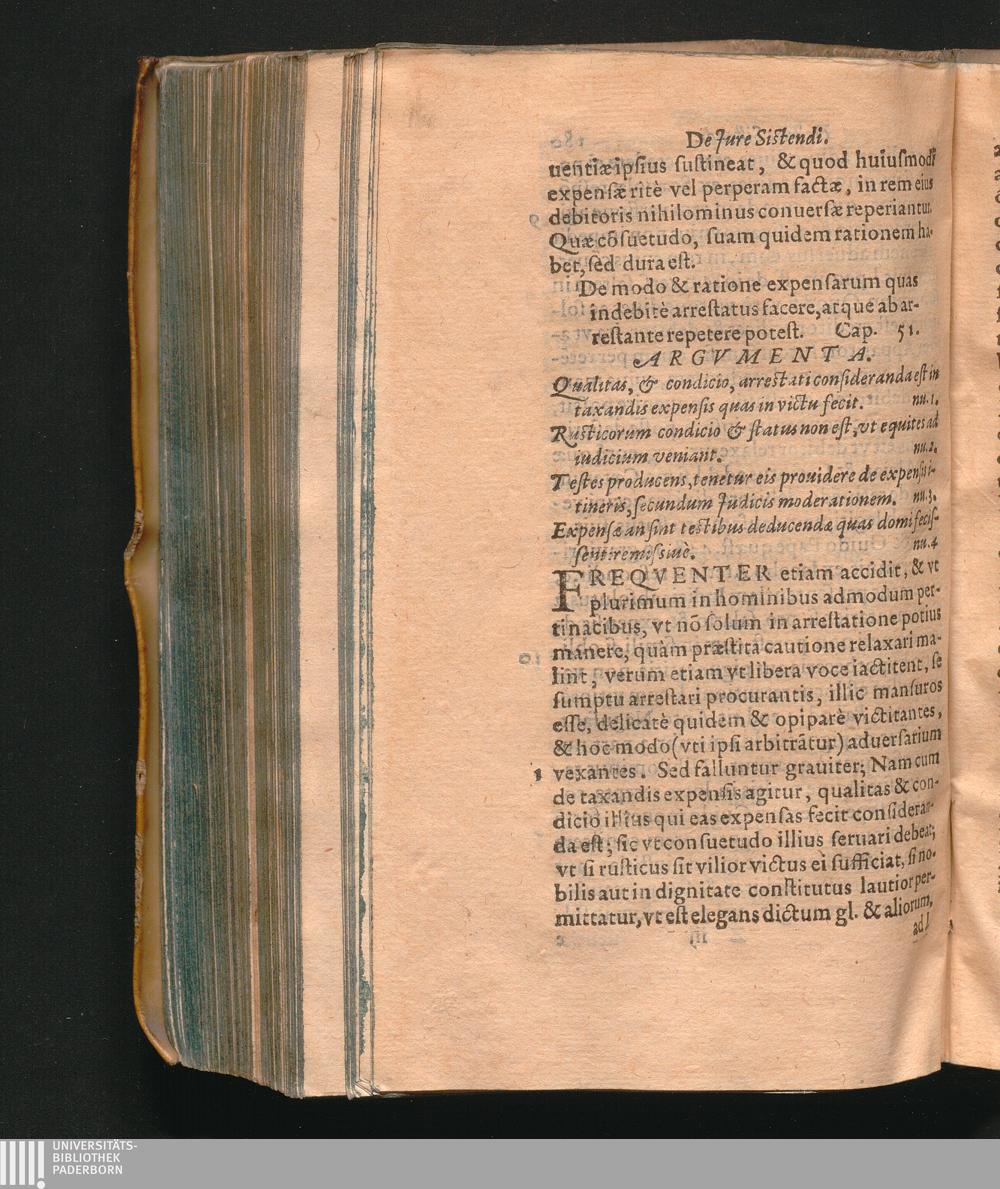 De Jure Sistendi.
uentiæ ipsius sustineat, & quod huiusmodi
expensæ ritè vel perperam factæ, in rem eius
debitoris nihilominus conuersæ reperiantur.
Quæ cõsuetudo, suam quidem rationem ha-
bet, sed dura est.
De modo & ratione expensarum quas
indebitè arrestatus facere, atque ab ar-
restante repetere potest. Cap. 51.
ARGVMENTA.
Qualitas, & condicio, arrestati consideranda est in
taxandis expensis quas in victu fecit. nu. 1.
Rusticorum condicio & status non est, vt equites ad
iudicium veniant. nu. 2.
Testes producens, tenetur eis prouidere de expensis i-
tineris, secundum Judicis moderationem. nu. 3.
Expensæ an sint testibus deducendæ quas domi fecis-
sent: remissiuè. nu. 4
FREQVENTER etiam accidit, & vt
plurimum in hominibus admodum per-
tinacibus, vt nõ solum in arrestatione potius
manere, quàm præstita cautione relaxari ma-
lint, verum etiam vt libera voce iactitent, se
sumptu arrestari procurantis, illic mansuros
esse, delicatè quidem & opiparè victitantes,
& hoc modo (vti ipsi arbitrãtur) aduersarium
1 vexantes. Sed falluntur grauiter; Nam cum
de taxandis expensis agitur, qualitas & con-
dicio illius qui eas expensas fecit consideran-
da est; sic vt consuetudo illius seruari debeat;
vt si rusticus sit vilior victus ei sufficiat, si no-
bilis aut in dignitate constitutus lautior per-
mittatur, vt est elegans dictum gl. & aliorum,
ad l
UNIVERSITÄTS-
BIBLIOTHEK
PADERBORN